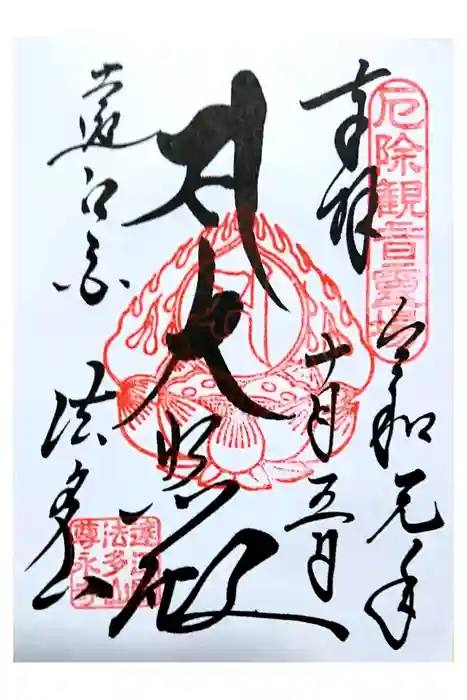 厄除観音霊場
奉拝
令和元年
十月五日
大悲殿
遠江国
法多山
遠江国
法多山
尊永寺